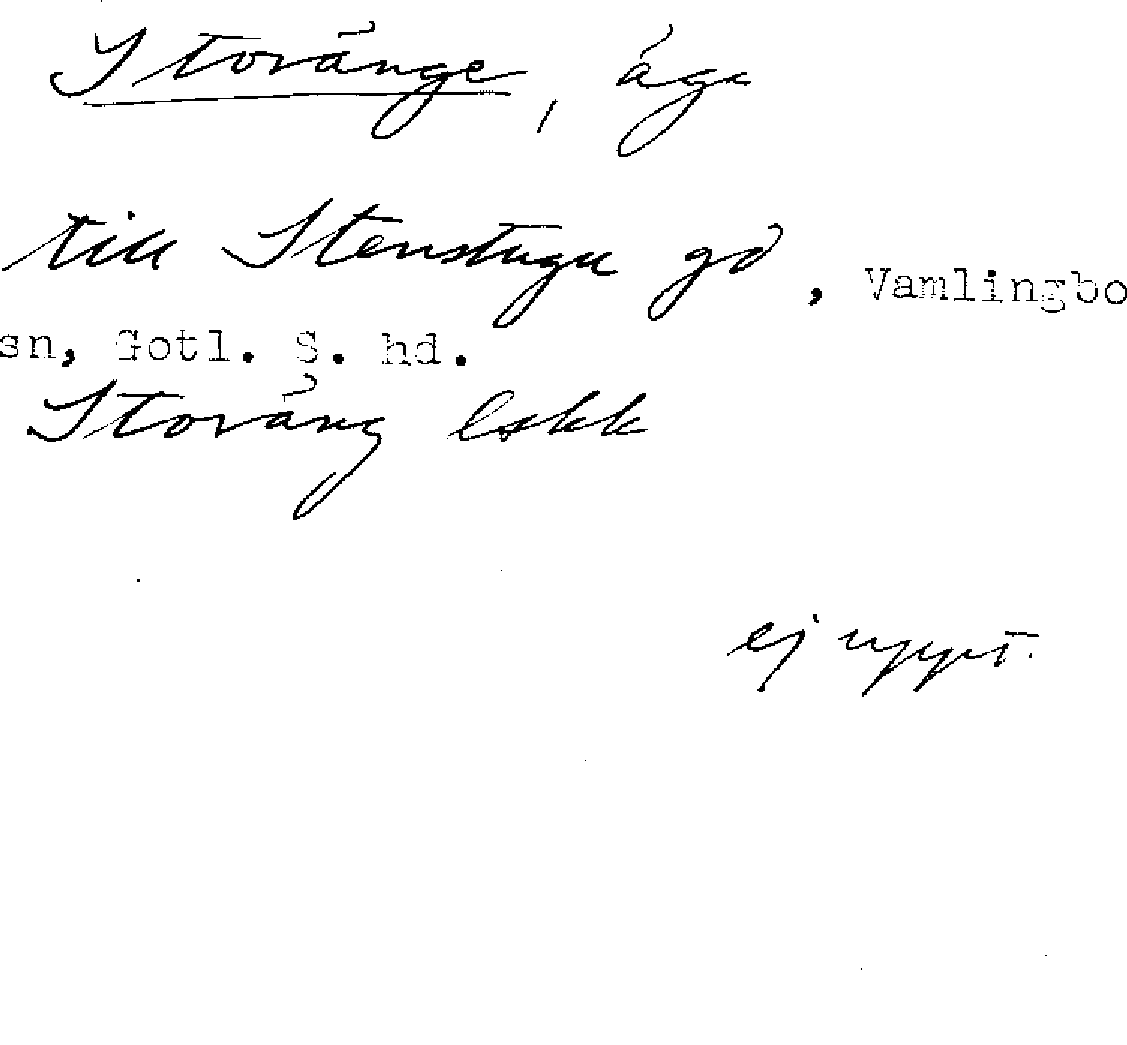 Storänge, äga
till Stenstugu gd, Vamlingbo
sn, Gotl. S. hd.
Storäng lskk
ej uppt.